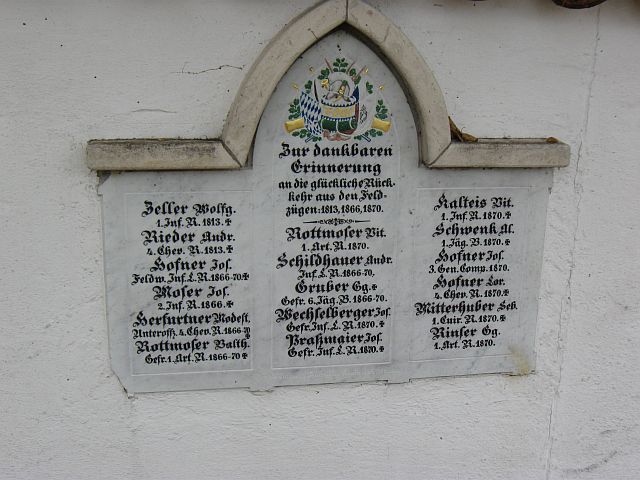 Zur dankbaren
Erinnerung
an die glückliche Rück-
kehr aus den Feld-
zügen: 1813, 1866, 1870.
Zeller Wolfg.
1. Inf. R. 1813.✠
Rieder Andr.
4. Chev. R. 1813.✠
Hofner Jos.
Feldw. Inf. L. R. 1866-70.✠
Moser Jos.
2. Inf. R. 1866.✠
Herfurtner Modest.
Unteroff. 4. Chev. R. 1866-70
Rottmoser Balth.
Gefr. 1. Art. R. 1866-70✠
Rottmoser Vit.
1. Art. R. 1870.
Schildhauer Andr.
Inf. L. R. 1866-70.
Gruber Gg.✠
Gefr. 6. Jäg. B. 1866-70.
Wechselberger Jos.
Gefr. Inf. L. R. 1870.✠
Praßmaier Jos.
Gefr. Inf. L. R. 1870.✠
Kalteis Vit.
1. Inf. R. 1870✠
Schwenk Al.
1. Jäg. B. 1870.✠
Hofner Jos.
3. Gen. Comp. 1870.
Hofner Lor.
4. Chev. R. 1870.✠
Mitterhuber Seb.
1. Cuir. R. 1870.✠
Rinser Gg.
1. Art. R. 1870.